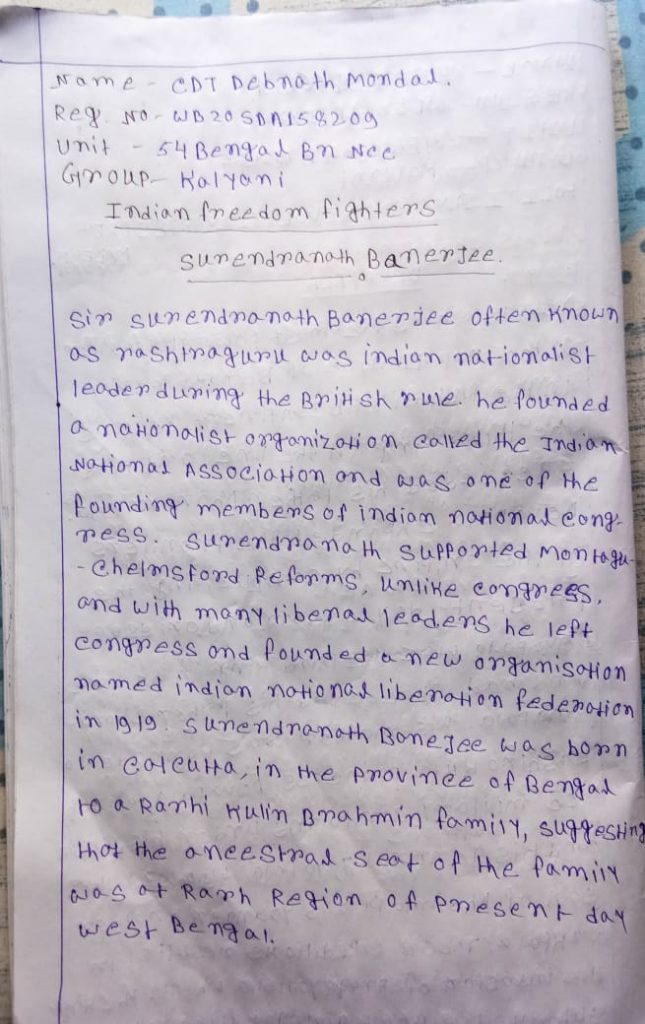 Name - CDT Debnath Mondal.
Reg. No - WB20SDA158209
Unit - 54 Bengal Bn Ncc
Group - Kalyani
Indian freedom fighters
Surendranath Banerjee.
Sir Surendranath Banerjee often known
as rashtraguru was indian nationalist
leader during the British rule. he founded
a nationalist organization called the Indian
National Association and was one of the
founding members of indian national cong-
ress. Surendranath supported Montagu-
- Chelmsford Reforms, unlike congress,
and with many liberal leaders he left
congress and founded a new organisation
named indian national liberation federation
in 1919. Surendranath Bonejee was born
in Calcutta, in the province of Bengal
to a Rarhi Kulin Brahmin family, suggesting
that the ancestral seat of the family
was at Rarh Region of present day
west Bengal.